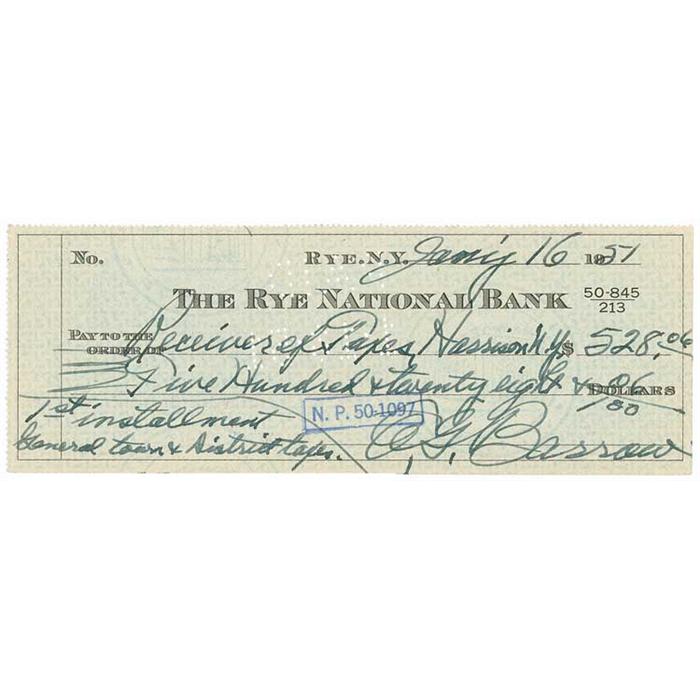 No. RYE. N.Y. Jan'y 16 1951
THE RYE NATIONAL BANK 50-845
213
PAY TO THE
ORDER OF Receiver of Taxes, Harrison N.Y. $ 528.06
Five Hundred & twenty eight & 06/100 DOLLARS
1st installment
General town & District taxes.
N. P. 50-1097
E. G. Barrow